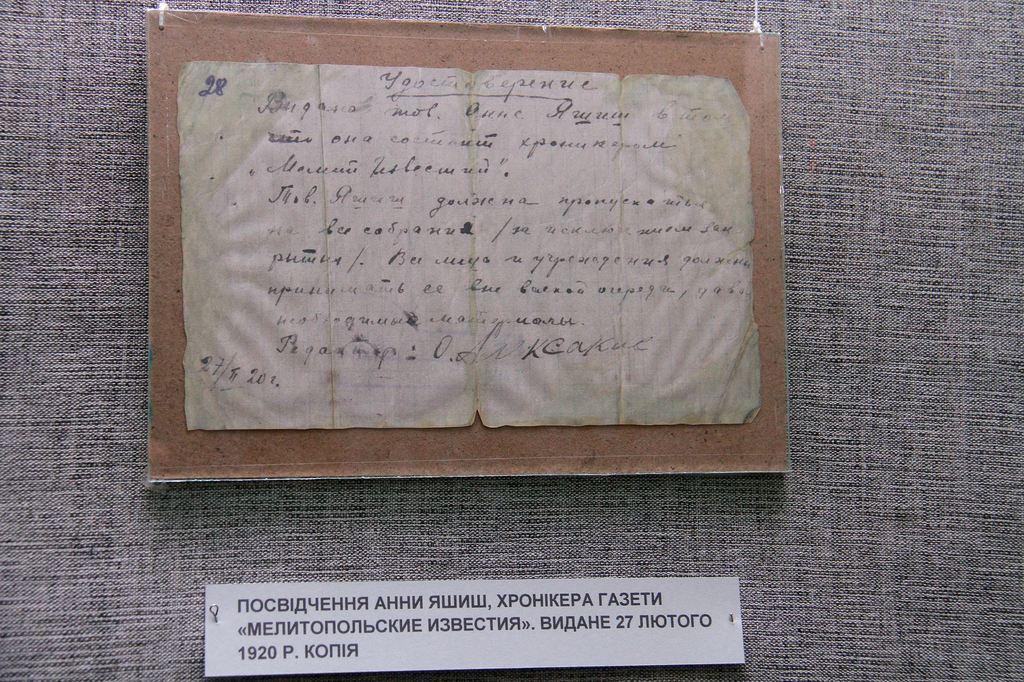 28
Удостоверение
Выдано тов. Анне Яшиш в том
что она состоит хроникером
„Мелит Известий".
Тов. Яшиш должна пропускаться
на все собрания /за исключением зак
рытых/. Все лица и учреждения должны
принимать ее вне всякой очереди, давая
необходимые материалы.
Редактор: О.
27/II 20 г.
ПОСВІДЧЕННЯ АННИ ЯШИШ, ХРОНІКЕРА ГАЗЕТИ
«МЕЛИТОПОЛЬСКИЕ ИЗВЕСТИЯ». ВИДАНЕ 27 ЛЮТОГО
1920 Р. КОПІЯ